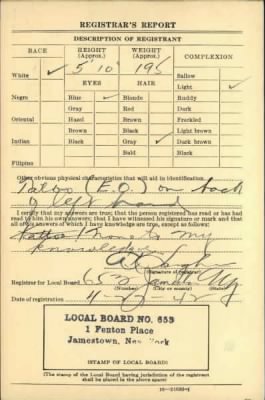 REGISTRAR'S REPORT
DESCRIPTION OF REGISTRANT
RACE HEIGHT (Approx.) WEIGHT (Approx.) COMPLEXION
5' 10 195
White ✓ Sallow
EYES HAIR Light ✓
Negro Blue ✓ Blonde Ruddy
Gray Red Dark
Oriental Hazel Brown Freckled
Brown Black Light brown
Indian Black Gray ✓ Dark brown
Bald Black
Filipino
Other obvious physical characteristics that will aid in identification
Tattoo (E.O.) on back
of left hand
I certify that my answers are true; that the person registered has read or has had
read to him his own answers; that I have witnessed his signature or mark and that
all of his answers of which I have knowledge are true, except as follows:
my
knowledge
(Signature of registrar)
Registrar for Local Board 653 NY
(Number) (City or county) (State)
Date of registration 42
LOCAL BOARD NO. 653
1 Fenton Place
Jamestown, New York
(STAMP OF LOCAL BOARD)
(The stamp of the Local Board having jurisdiction of the registrant
shall be placed in the above space)